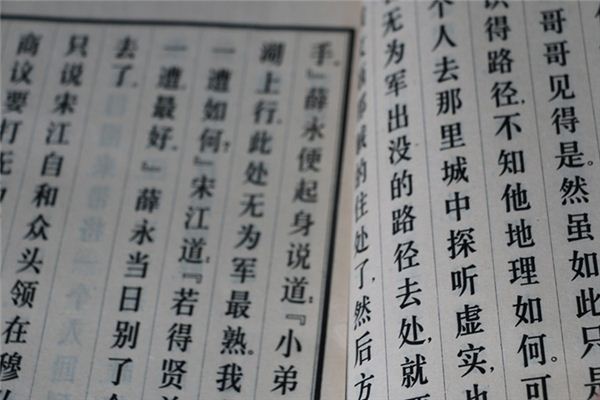 哥哥见得是。然虽如此只是
识得路径，不知他地理如何。可
个人去那里城中探听虚实，
无为军出没的路径去处，就要
的住处了，然后方
手。』薛永便起身说道：『小弟
湖上行，此处无为军最熟。我
一遭如何？』宋江道：『若得贤
一遭最好。』薛永当日别了
去了。
只说宋江自和众头领在穆
商议要打无